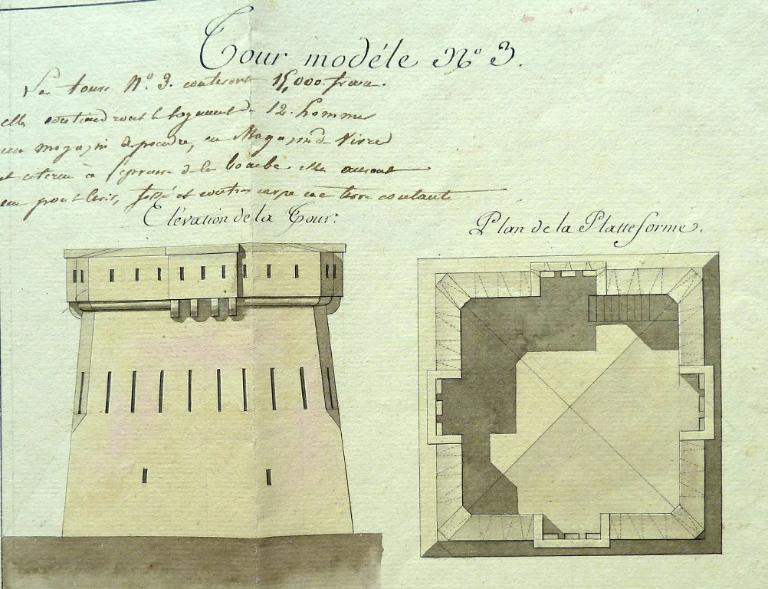 Tour modéle Nº 3.
Les tours Nº 3. couteront 15,000 francs.
elles contiendront le logement de 12. hommes
un magazin à poudre, un Magazin de Vivre
et citerne à l'épreuve de la bombe. elles auront
un pont levis, fossé et contrescarpe en terre coulante
Elévation de la Tour:
Plan de la Platteforme.